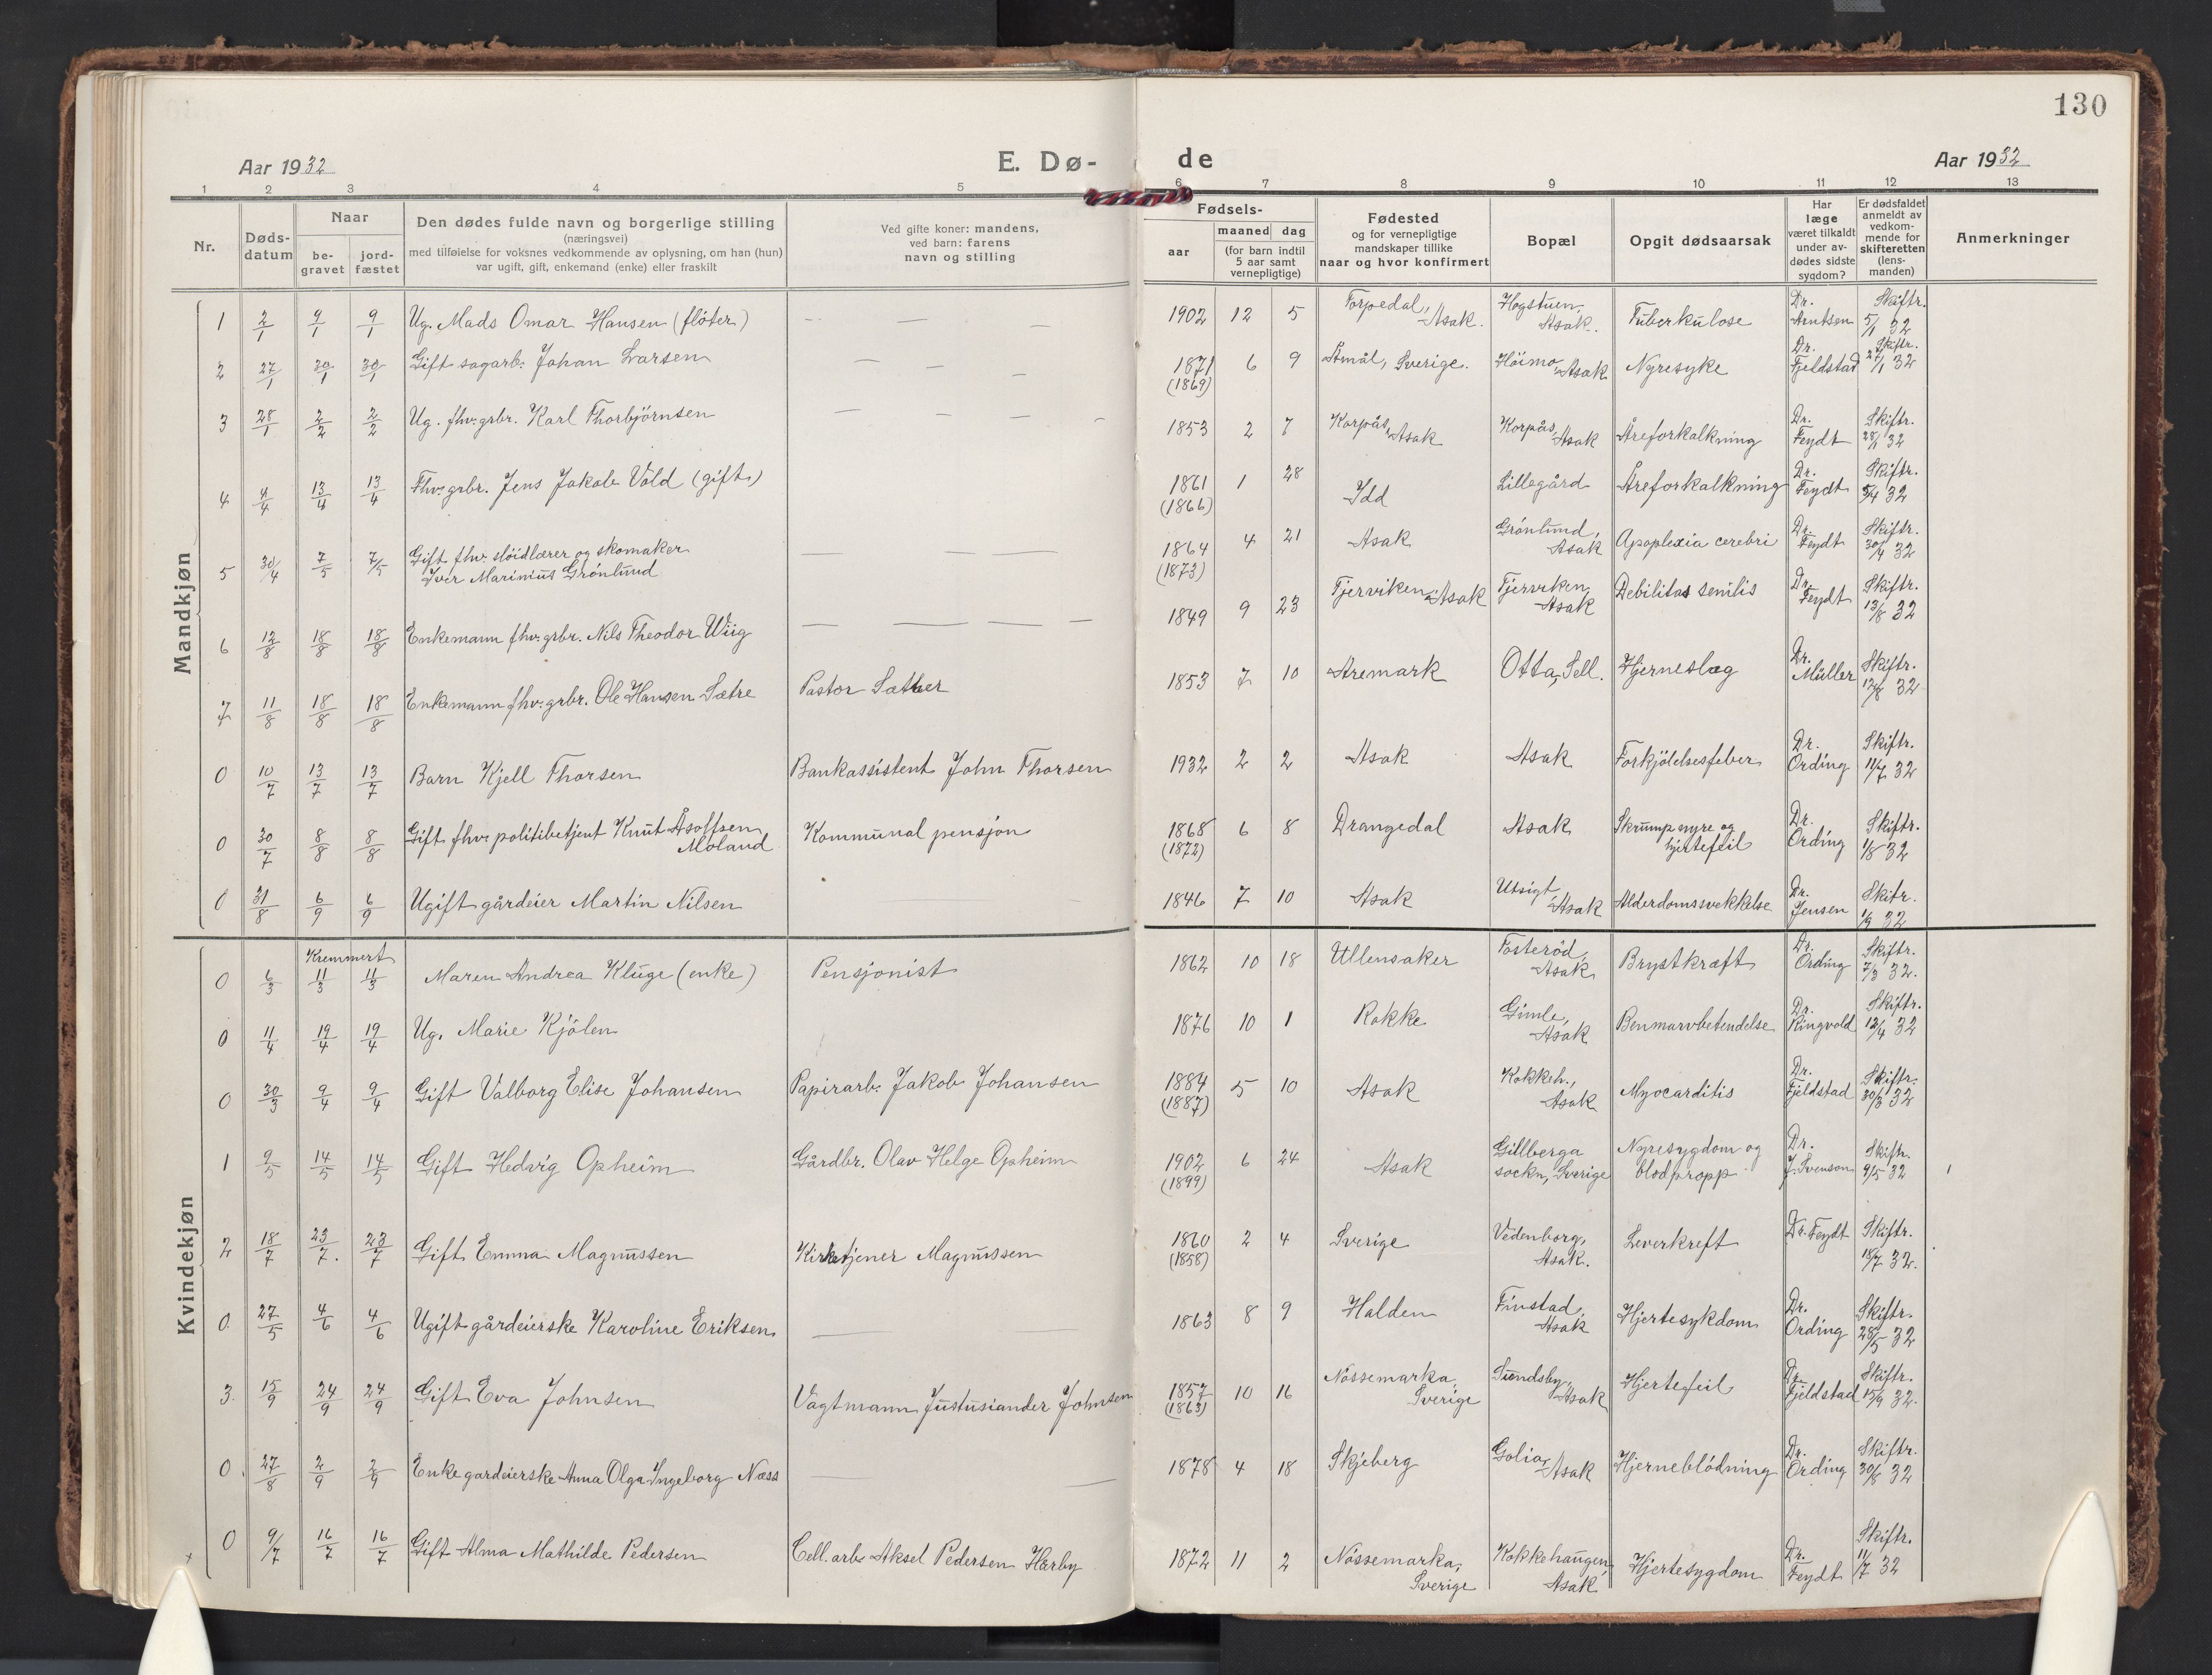 130
Aar 1932
E. Dø-
de
Aar 1932
1 2 3 4 5 6 7 8 9 10 11 12 13
Nr.
Døds-
datum
Naar
be-
gravet
jord-
fæstet
Den dødes fulde navn og borgerlige stilling
(næringsvei)
med tilføielse for voksnes vedkommende av oplysning, om han (hun)
var ugift, gift, enkemand (enke) eller fraskilt
Ved gifte koner: mandens,
ved barn: farens
navn og stilling
Fødsels-
aar
maaned dag
(for barn indtil
5 aar samt
vernepligtige)
Fødested
og for vernepligtige
mandskaper tillike
naar og hvor konfirmert
Bopæl
Opgit dødsaarsak
Har
læge
været tilkaldt
under av-
dødes sidste
sygdom?
Er dødsfaldet
anmeldt av
vedkom-
mende for
skifteretten
(lens-
manden)
Anmerkninger
Mandkjøn
1 2/1 9/1 9/1 Ug. Mads Omar Hansen (fløter) 1902 12 5 Torpedal, Asak. Høgstuen, Asak. Tuberkulose Dr. Arntsen Skiftr. 5/1 32
2 27/1 30/1 30/1 Gift sagarb. Johan Larsen 1871 (1869) 6 9 Åmål, Sverige. Höimo, Asak Nyresyke Dr. Fjeldstad Skiftr. 27/1 32
3 28/1 2/2 2/2 Ug. fhv. grbr. Karl Thorbjörnsen 1853 2 7 Korpås, Asak Korpås, Asak Åreforkalkning Dr. Feydt Skiftr. 28/1 32
4 4/4 13/4 13/4 Fhv. grbr. Jens Jakob Vold (gift) 1861 (1866) 1 28 Idd Lillegård Åreforkalkning Dr. Feydt Skiftr. 5/4 32
5 30/4 7/5 7/5 Gift fhv. sløidlærer og skomaker
Iver Marinius Grönlund 1864 (1873) 4 21 Asak Grönlund, Asak Apoplexia cerebri Dr. Feydt Skiftr. 30/4 32
6 12/8 18/8 18/8 Enkemann fhv. grbr. Nils Theodor Wiig 1849 9 23 Tjerviken, Asak Tjerviken, Asak Debilitas senilis Dr. Feydt Skiftr. 13/8 32
7 11/8 18/8 18/8 Enkemann fhv. grbr. Ole Hansen Sætre Pastor Sæther 1853 7 10 Aremark Otta, Sell. Hjerneslag Dr. Müller Skiftr. 12/8 32
0 10/7 13/7 13/7 Barn Kjell Thorsen Bankassistent John Thorsen 1932 2 2 Asak Asak Forkjölelsesfeber Dr. Ording Skiftr. 11/7 32
0 30/7 8/8 8/8 Gift fhv. politibetjent Knut Åsolfsen
Moland Kommunal pensjon 1868 (1872) 6 8 Drangedal Asak Skrumpnyre og hjertefeil Dr. Ording Skiftr. 1/8 32
0 31/8 6/9 6/9 Ugift gårdeier Martin Nilsen 1846 7 10 Asak Utsigt, Asak Alderdomssvekkelse Dr. Jensen Skiftr. 1/9 32
Kvindekjøn
Kremmert
0 6/3 11/3 11/3 Maren Andrea Kluge (enke) Pensjonist 1862 10 18 Ullensaker Tosteröd, Asak Brystkræft Dr. Ording Skiftr. 7/3 32.
0 11/4 19/4 19/4 Ug. Marie Kjölen 1876 10 1 Rokke Gimle, Asak Benmarvbetendelse Dr. Ringvold Skiftr. 12/4 32
0 30/3 9/4 9/4 Gift Valborg Elise Johansen Papirarb. Jakob Johansen 1884 (1887) 5 10 Asak Kokkeh., Asak Myocarditis Dr. Fjeldstad Skiftr. 30/3 32
1 9/5 14/5 14/5 Gift Hedvig Opheim Gårdbr. Olav Helge Opheim 1902 (1899) 6 24 Asak Gillberga sockn, Sverige Nyresygdom og blodpropp Dr. J. Svenson Skiftr. 9/5 32
2 18/7 23/7 23/7 Gift Emma Magnussen Kirketjener Magnussen 1860 (1858) 2 4 Sverige Vedenborg, Asak. Leverkreft Dr. Feydt Skiftr. 18/7 32.
0 27/5 4/6 4/6 Ugift gårdeierske Karoline Eriksen 1863 8 9 Halden Finstad, Asak Hjertesykdom Dr. Ording Skiftr. 28/5 32
3 15/9 24/9 24/9 Gift Eva Johnsen Vagtmann Justusiander Johnsen 1857 (1863) 10 16 Nössemarka, Sverige Sundsby, Asak Hjertefeil Dr. Fjeldstad Skiftr. 15/9 32.
0 27/8 2/9 2/9 Enke gardeierske Anna Olga Ingeborg Næss 1878 4 18 Skjeberg Golia, Asak Hjerneblödning Dr. Ording Skiftr. 30/8 32
0 9/7 16/7 16/7 Gift Alma Mathilde Pedersen Cell.arb. Aksel Pedersen Hærby 1872 11 2 Nössemarka, Sverige Kokkehaugen, Asak Hjertesygdom Dr. Feydt Skiftr. 11/7 32